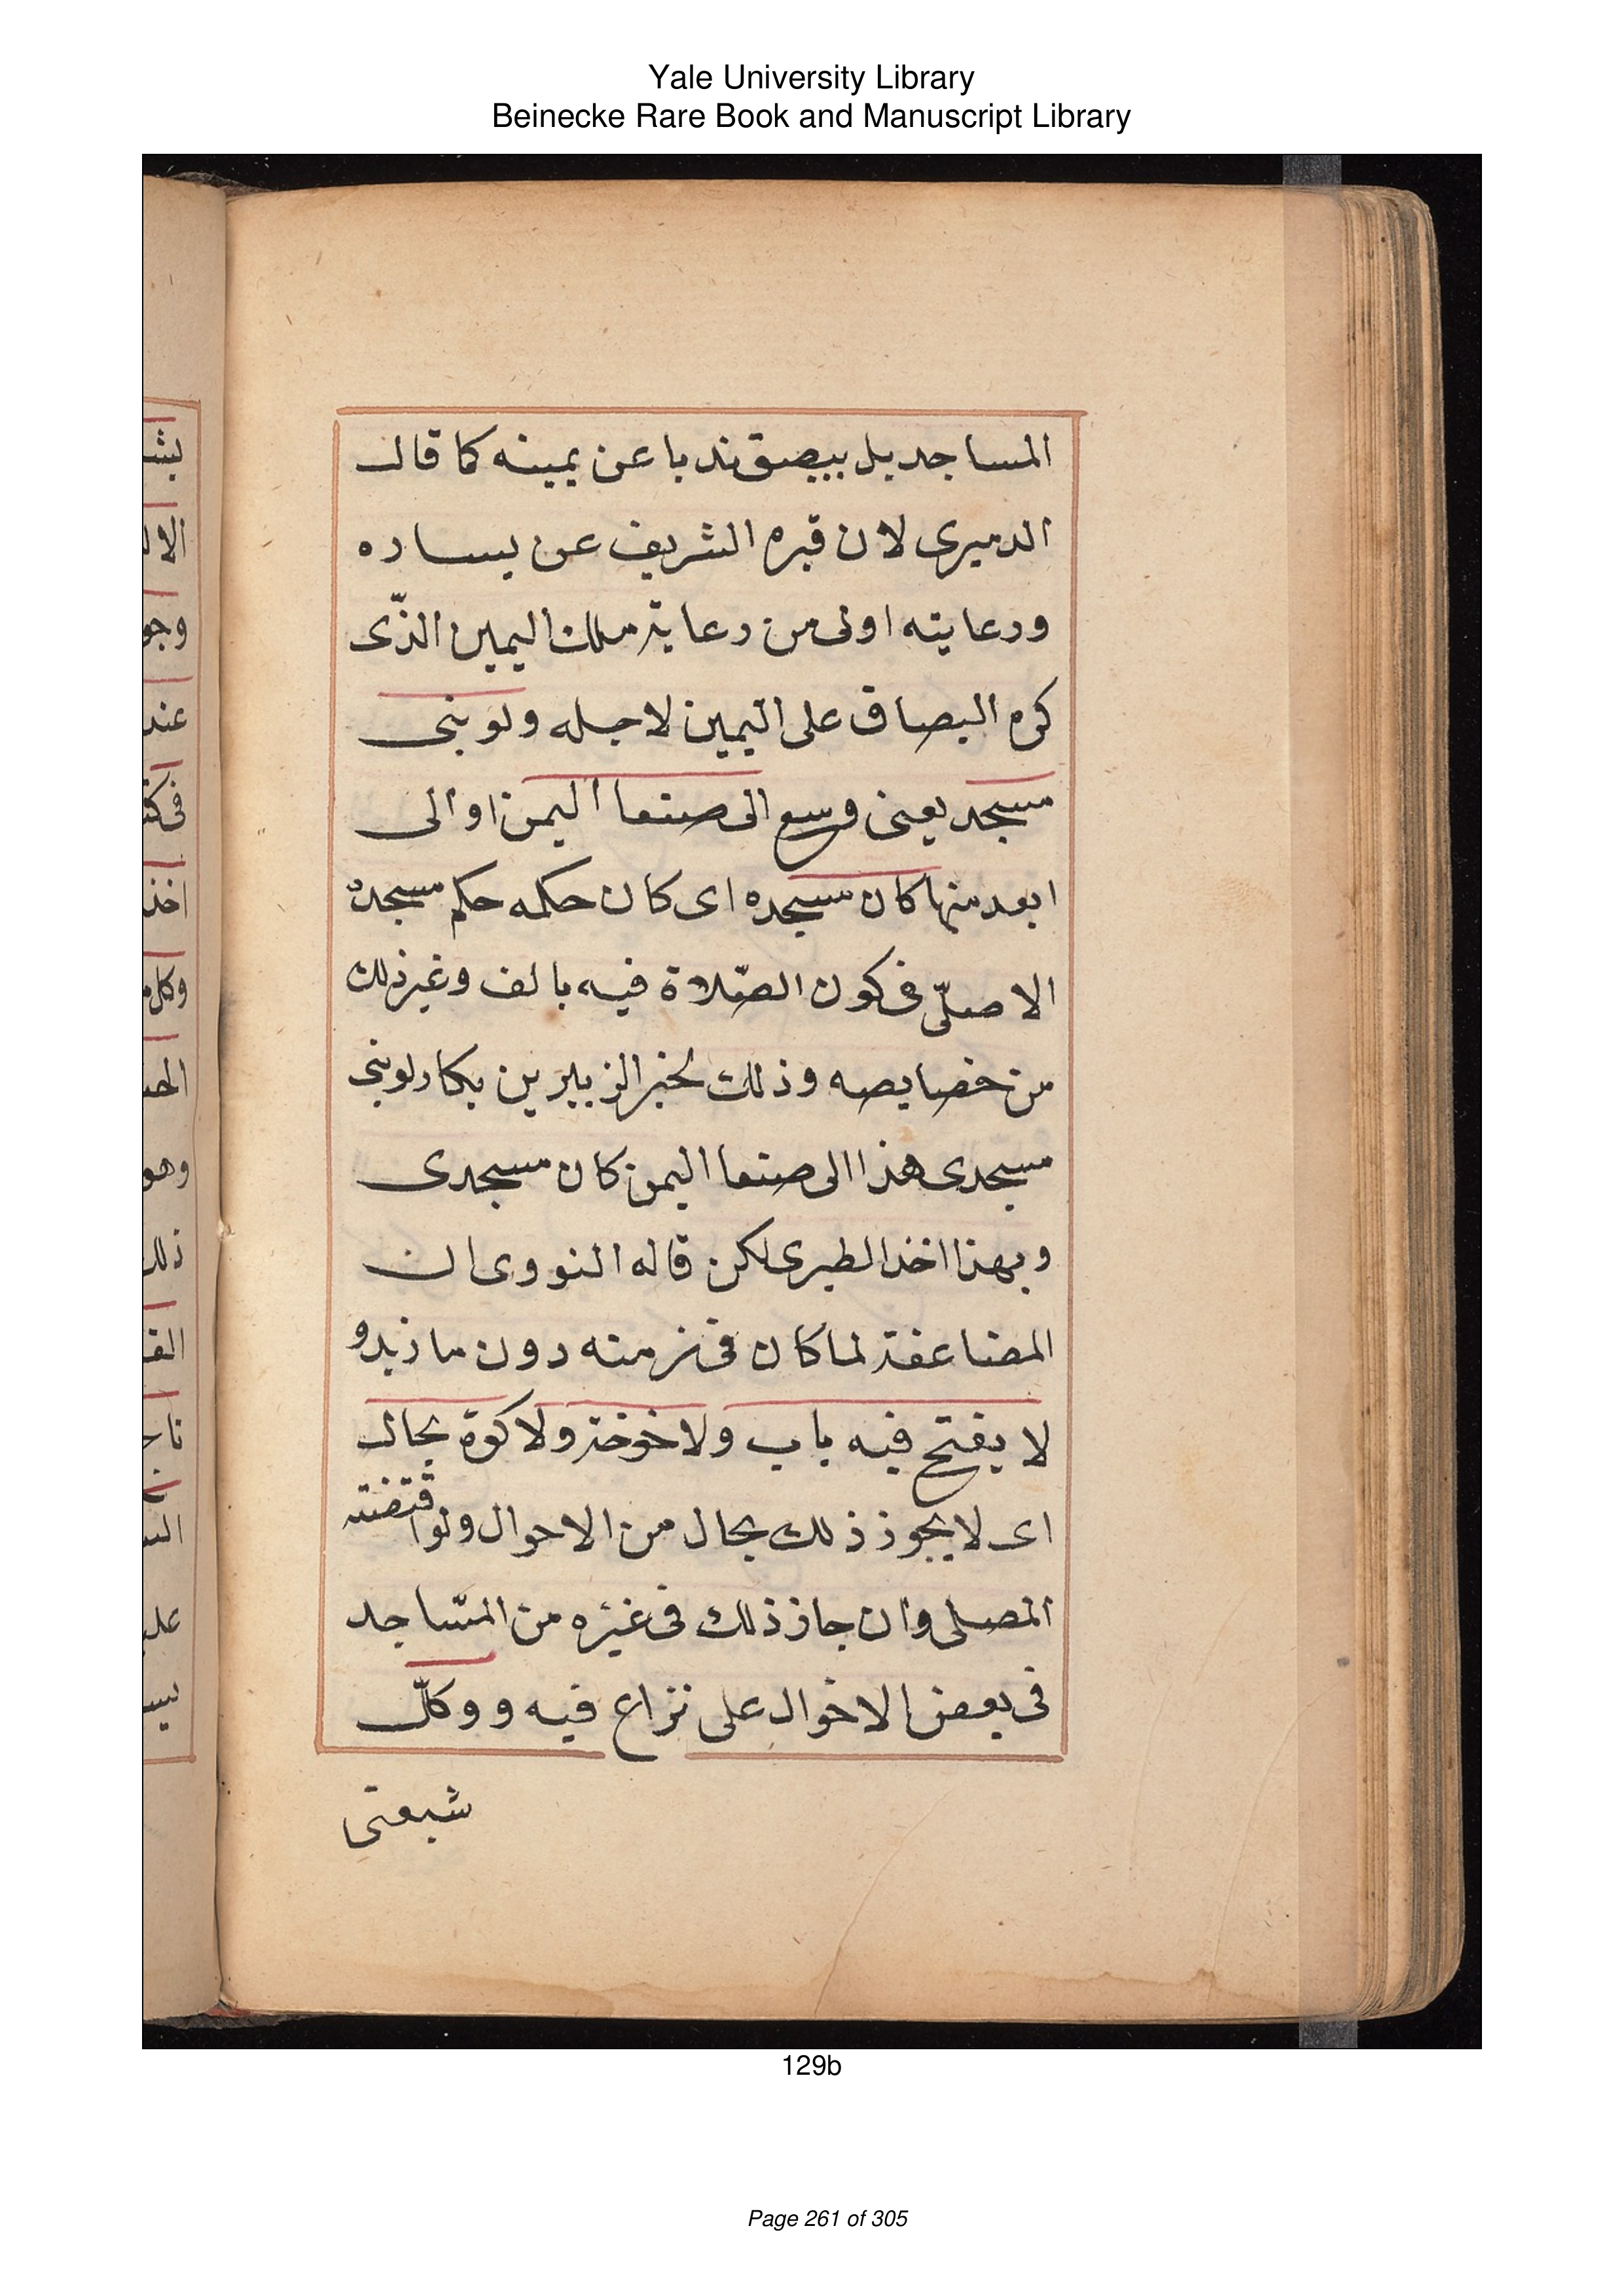 Yale University Library
Beinecke Rare Book and Manuscript Library
المساجد بل يبصق ندبا عن يمينه كما قال
الدميرى لان قبره الشريف عن يساره
ورعايته اولى من رعاية ملك اليمين الذّى
كره البصاق على اليمين لاجله ولو بنى
مسجد يعنى وسع الى صنعا اليمن او الى
ابعد منها كان مسجده اى كان حكمه حكم مسجده
الاصلّى فى كون الصّلاة فيه بالف وغير ذلك
من خصايصه وذلك لخبر الزبير بن بكار لو بنى
مسجدى هذا الى صنعا اليمن كان مسجدى
وبهذا اخذ الطبرى لكن قاله النووى ان
المضاعفة لما كان فى زمنه دون ما زيد و
لا يفتح فيه باب ولا خوخة ولا كوة بحال
اى لا يجوز ذلك بحال من الاحوال ولو اقتضته
المصلى وان جاز ذلك فى غيره من المسّاجد
فى بعض الاحوال على نزاع فيه و وكلّ
شبعتى
129b
Page 261 of 305
بثـ
الال
وجو
عند
فى كتـ
اخذ
وكل م
وهو
ذلك